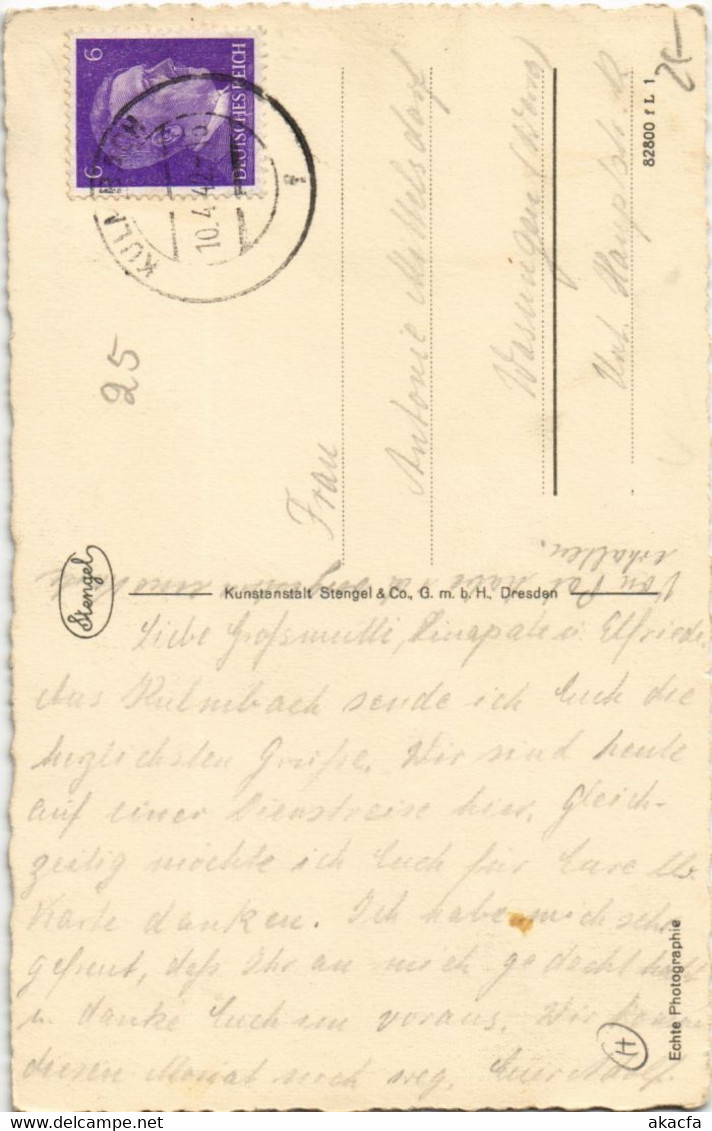 6 6
DEUTSCHES REICH
KULMBACH
10.4.42
25
25
82800 f L 1
Frau
Antonie Mittelsdorf
Wasungen (Werra)
Unt. Hauptstr.
Stengel
Kunstanstalt Stengel & Co., G. m. b. H., Dresden
Von habe
erhalten.
Liebe Großmutti, u. Elfriede.
Aus Kulmbach sende ich Euch die
herzlichsten Grüße. Wir sind heute
auf einer Dienstreise hier. Gleich-
zeitig möchte ich Euch für Eure lb.
Karte danken. Ich habe mich sehr
gefreut, daß Ihr an mich gedacht habt
u. danke Euch im voraus. Wir kommen
diesen Monat noch weg. Euer Adolf.
H
Echte Photographie
www.akacfa.com
akacfa